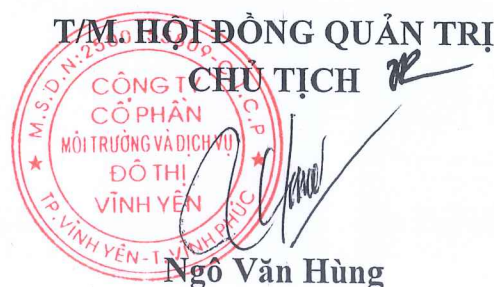 T/M. HỘI ĐỒNG QUẢN TRỊ
CHỦ TỊCH
CÔNG TY
CỔ PHẦN
MÔI TRƯỜNG VÀ DỊCH VỤ
ĐÔ THỊ
VĨNH YÊN
TP. VĨNH YÊN - T. VĨNH PHÚC
Ngô Văn Hùng